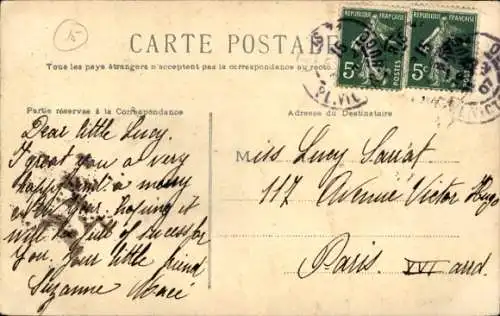 5
RÉPUBLIQUE FRANÇAISE RÉPUBLIQUE FRANÇAISE
5c POSTES 5c POSTES
CARTE POSTALE
Tous les pays étrangers n'acceptent pas la correspondance au recto.
Partie réservée à la Correspondance
Adresse du Destinataire
Dear little Lucy.
I great you a very
happy and a merry
New Year, hoping it
will be full of success for
You. Your little friend
Suzanne
M iss Lucy Sarrat
117 Avenue Victor Hugo
Paris. XVI arrd.